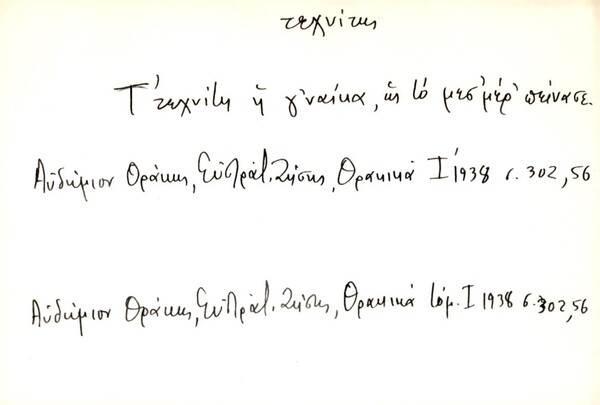 τεχνίτης
Τ' τεχνίτη ἡ γ'ναίκα, ὡς τὸ μεσ'μέρ' πείνασε.
Αὐδήμιον Θράκης, Εὐστράτ. Ζήσης, Θρακικά Ι' 1938 σ. 302, 56
Αὐδήμιον Θράκης, Εὐστράτ. Ζήσης, Θρακικά τόμ. Ι 1938 σ. 302, 56